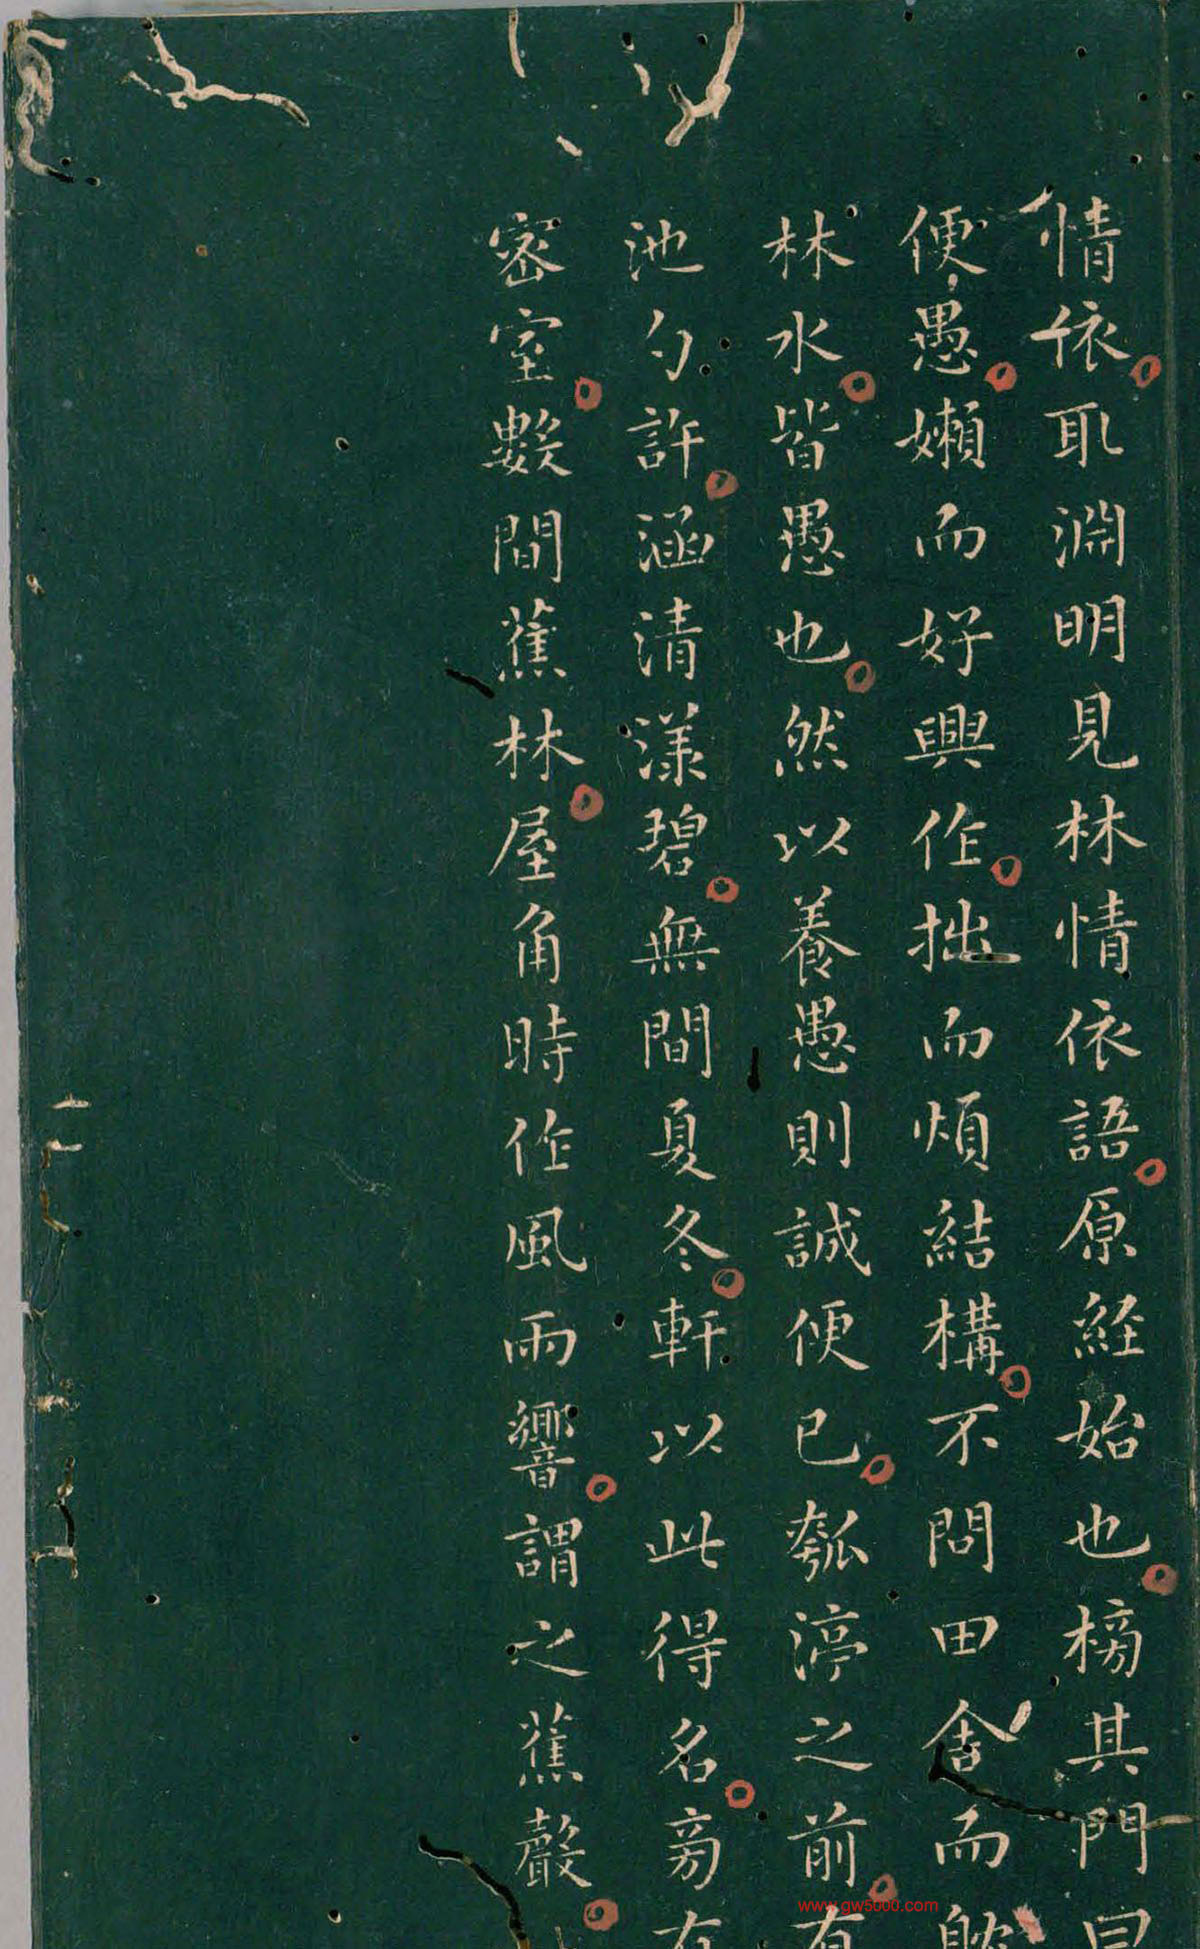 情依取淵明見林情依語原經始也榜其門曰
便愚嬾而好興作拙而煩結構不問田舍而
林水皆愚也然以養愚則誠便已瓠渟之前有
池勺許涵清漾碧無間夏冬軒以此得名旁有
密室數間蕉林屋角時作風雨響謂之蕉聲
www.gw5000.com